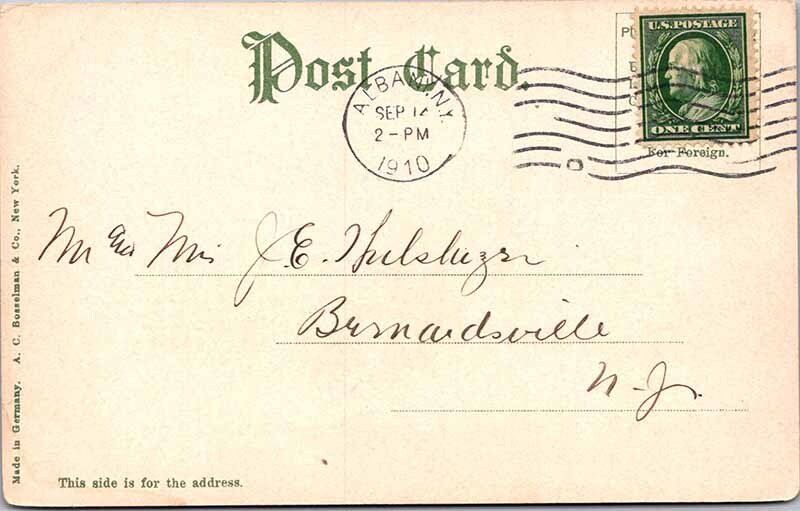 Post Card.
ALBANY, N.Y.
SEP 12
2-PM
1910
U.S. POSTAGE
ONE CENT
For Foreign.
Mr and Mrs J. E.
Bernardsville
N-J.
Made in Germany. A. C. Bosselman & Co., New York.
This side is for the address.